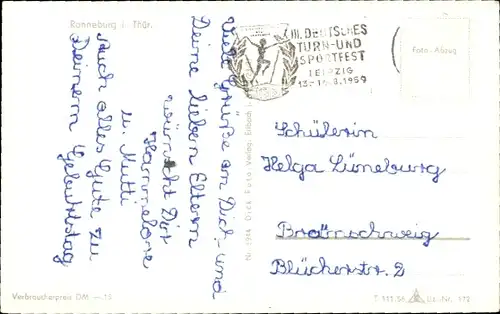 Ronneburg i. Thür.
III. DEUTSCHES
TURN- UND
SPORTFEST
LEIPZIG
13.-16.8.1959
Foto-Abzug
Viele Grüße an Dich und
Deine lieben Eltern
wünscht Dir
Hannelore
u. Mutti
Auch alles Gute zu
Deinem Geburtstag
Schülerin
Helga Lüneburg
Braunschweig
Blücherstr. 2
Nr. 1914 Dick Foto-Verlag, Erlbach i.
Verbraucherpreis DM —.15